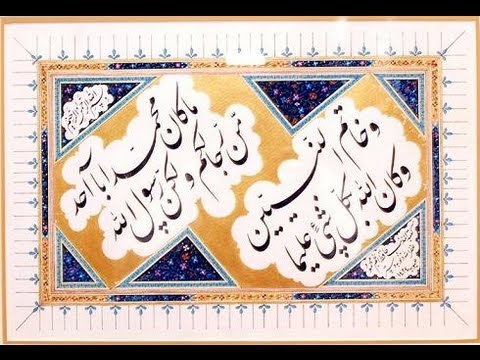 ما كان محمد ابا احد
من رجالكم ولكن رسول الله
وخاتم النبيين
وكان الله بكل شئ عليما